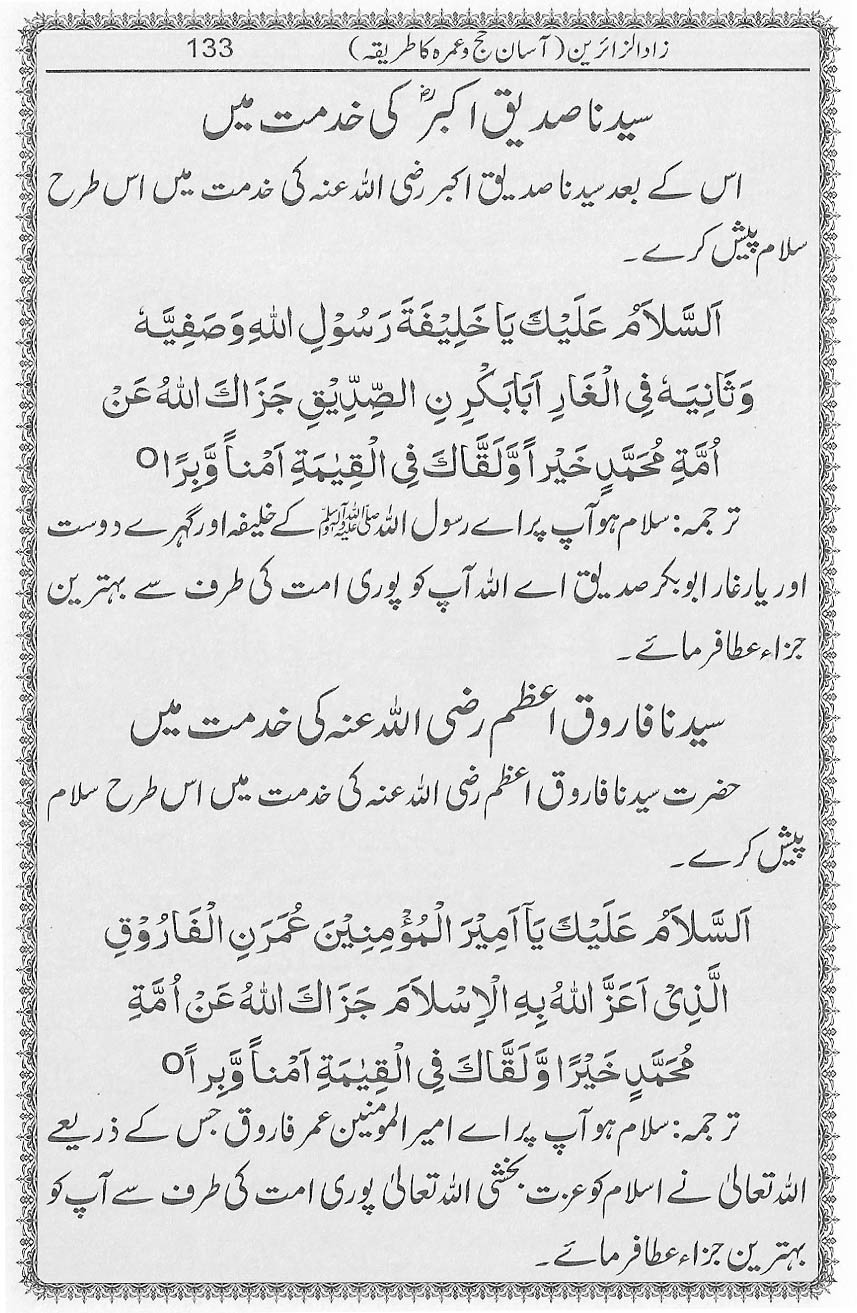 زاد الزائرین (آسان حج و عمرہ کا طریقہ) 133
سیدنا صدیق اکبرؓ کی خدمت میں
اس کے بعد سیدنا صدیق اکبر رضی اللہ عنہ کی خدمت میں اس طرح
سلام پیش کرے۔
اَلسَّلَامُ عَلَيْكَ يَا خَلِيْفَةَ رَسُوْلِ اللهِ وَصَفِيَّهٗ
وَثَانِيَهٗ فِي الْغَارِ اَبَابَكْرِ نِ الصِّدِّيْقِ جَزَاكَ اللهُ عَنْ
اُمَّةِ مُحَمَّدٍ خَيْراً وَّلَقَّاكَ فِي الْقِيٰمَةِ اَمْناً وَّبِرًّا ○
ترجمہ: سلام ہو آپ پر اے رسول اللہ ﷺ کے خلیفہ اور گہرے دوست
اور یار غار ابوبکر صدیق اے اللہ آپ کو پوری امت کی طرف سے بہترین
جزاء عطا فرمائے۔
سیدنا فاروق اعظم رضی اللہ عنہ کی خدمت میں
حضرت سیدنا فاروق اعظم رضی اللہ عنہ کی خدمت میں اس طرح سلام
پیش کرے۔
اَلسَّلَامُ عَلَيْكَ يَآ اَمِيْرَ الْمُؤْمِنِيْنَ عُمَرَنِ الْفَارُوْقِ
الَّذِيْ اَعَزَّ اللهُ بِهِ الْاِسْلَامَ جَزَاكَ اللهُ عَنْ اُمَّةِ
مُحَمَّدٍ خَيْرًا وَّلَقَّاكَ فِي الْقِيٰمَةِ اَمْناً وَّبِراً ○
ترجمہ: سلام ہو آپ پر اے امیر المومنین عمر فاروق جس کے ذریعے
اللہ تعالیٰ نے اسلام کو عزت بخشی اللہ تعالیٰ پوری امت کی طرف سے آپ کو
بہترین جزاء عطا فرمائے۔